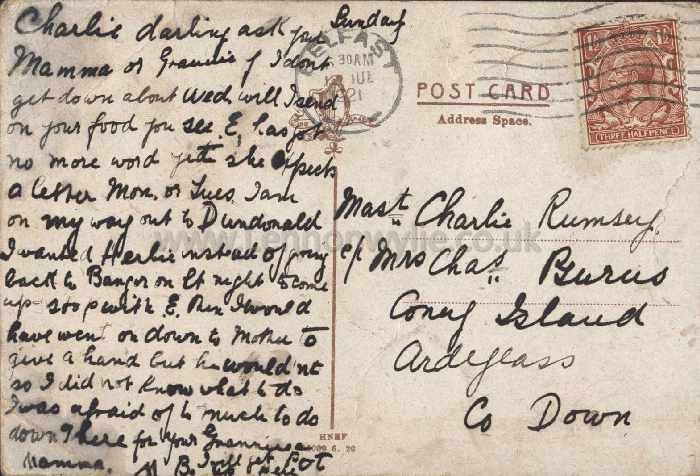 Sunday
Charlie darling ask your
Mamma or Grannie if I dont
get down about Wed. will I send
on your food you see E. has got
no more word yet she expects
a letter Mon. or Tues. I am
on my way out to Dundonald
I wanted Harlie instead of going
back to Bangor on St night to come
up stop with E. then I would
have went on down to Mother to
give a hand but he would'nt
so I did not know what to do
I was afraid of to much to do
down there for your Grannie &
Mamma.
BELFAST
30 AM
JUL
21
POST CARD
Address Space.
THREE HALFPENCE
Mastr Charlie Rumsey.
c/o Mrs Chas Burns
Coney Island
Ardglass
Co Down
HNEF
6. 20
www.lennonwylie.co.uk